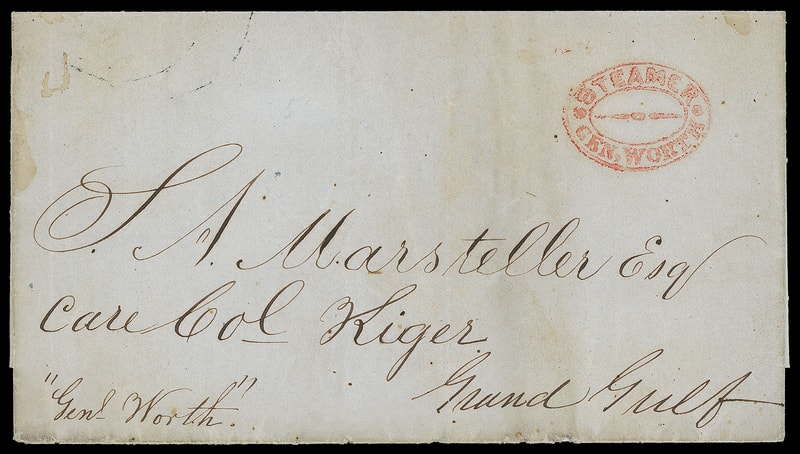 STEAMER
GEN. WORTH
S. A. Marsteller Esq
Care Col Kiger
Grand Gulf
"Genl Worth"